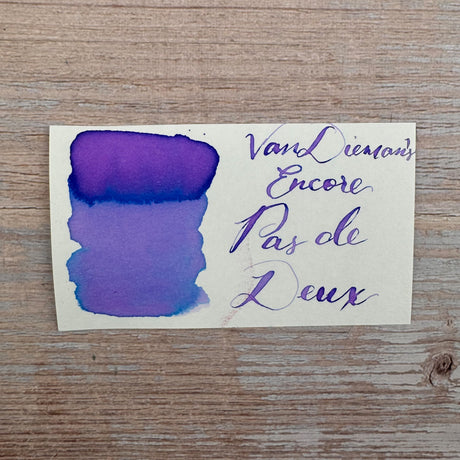 Van Dieman's
Encore
Pas de
Deux